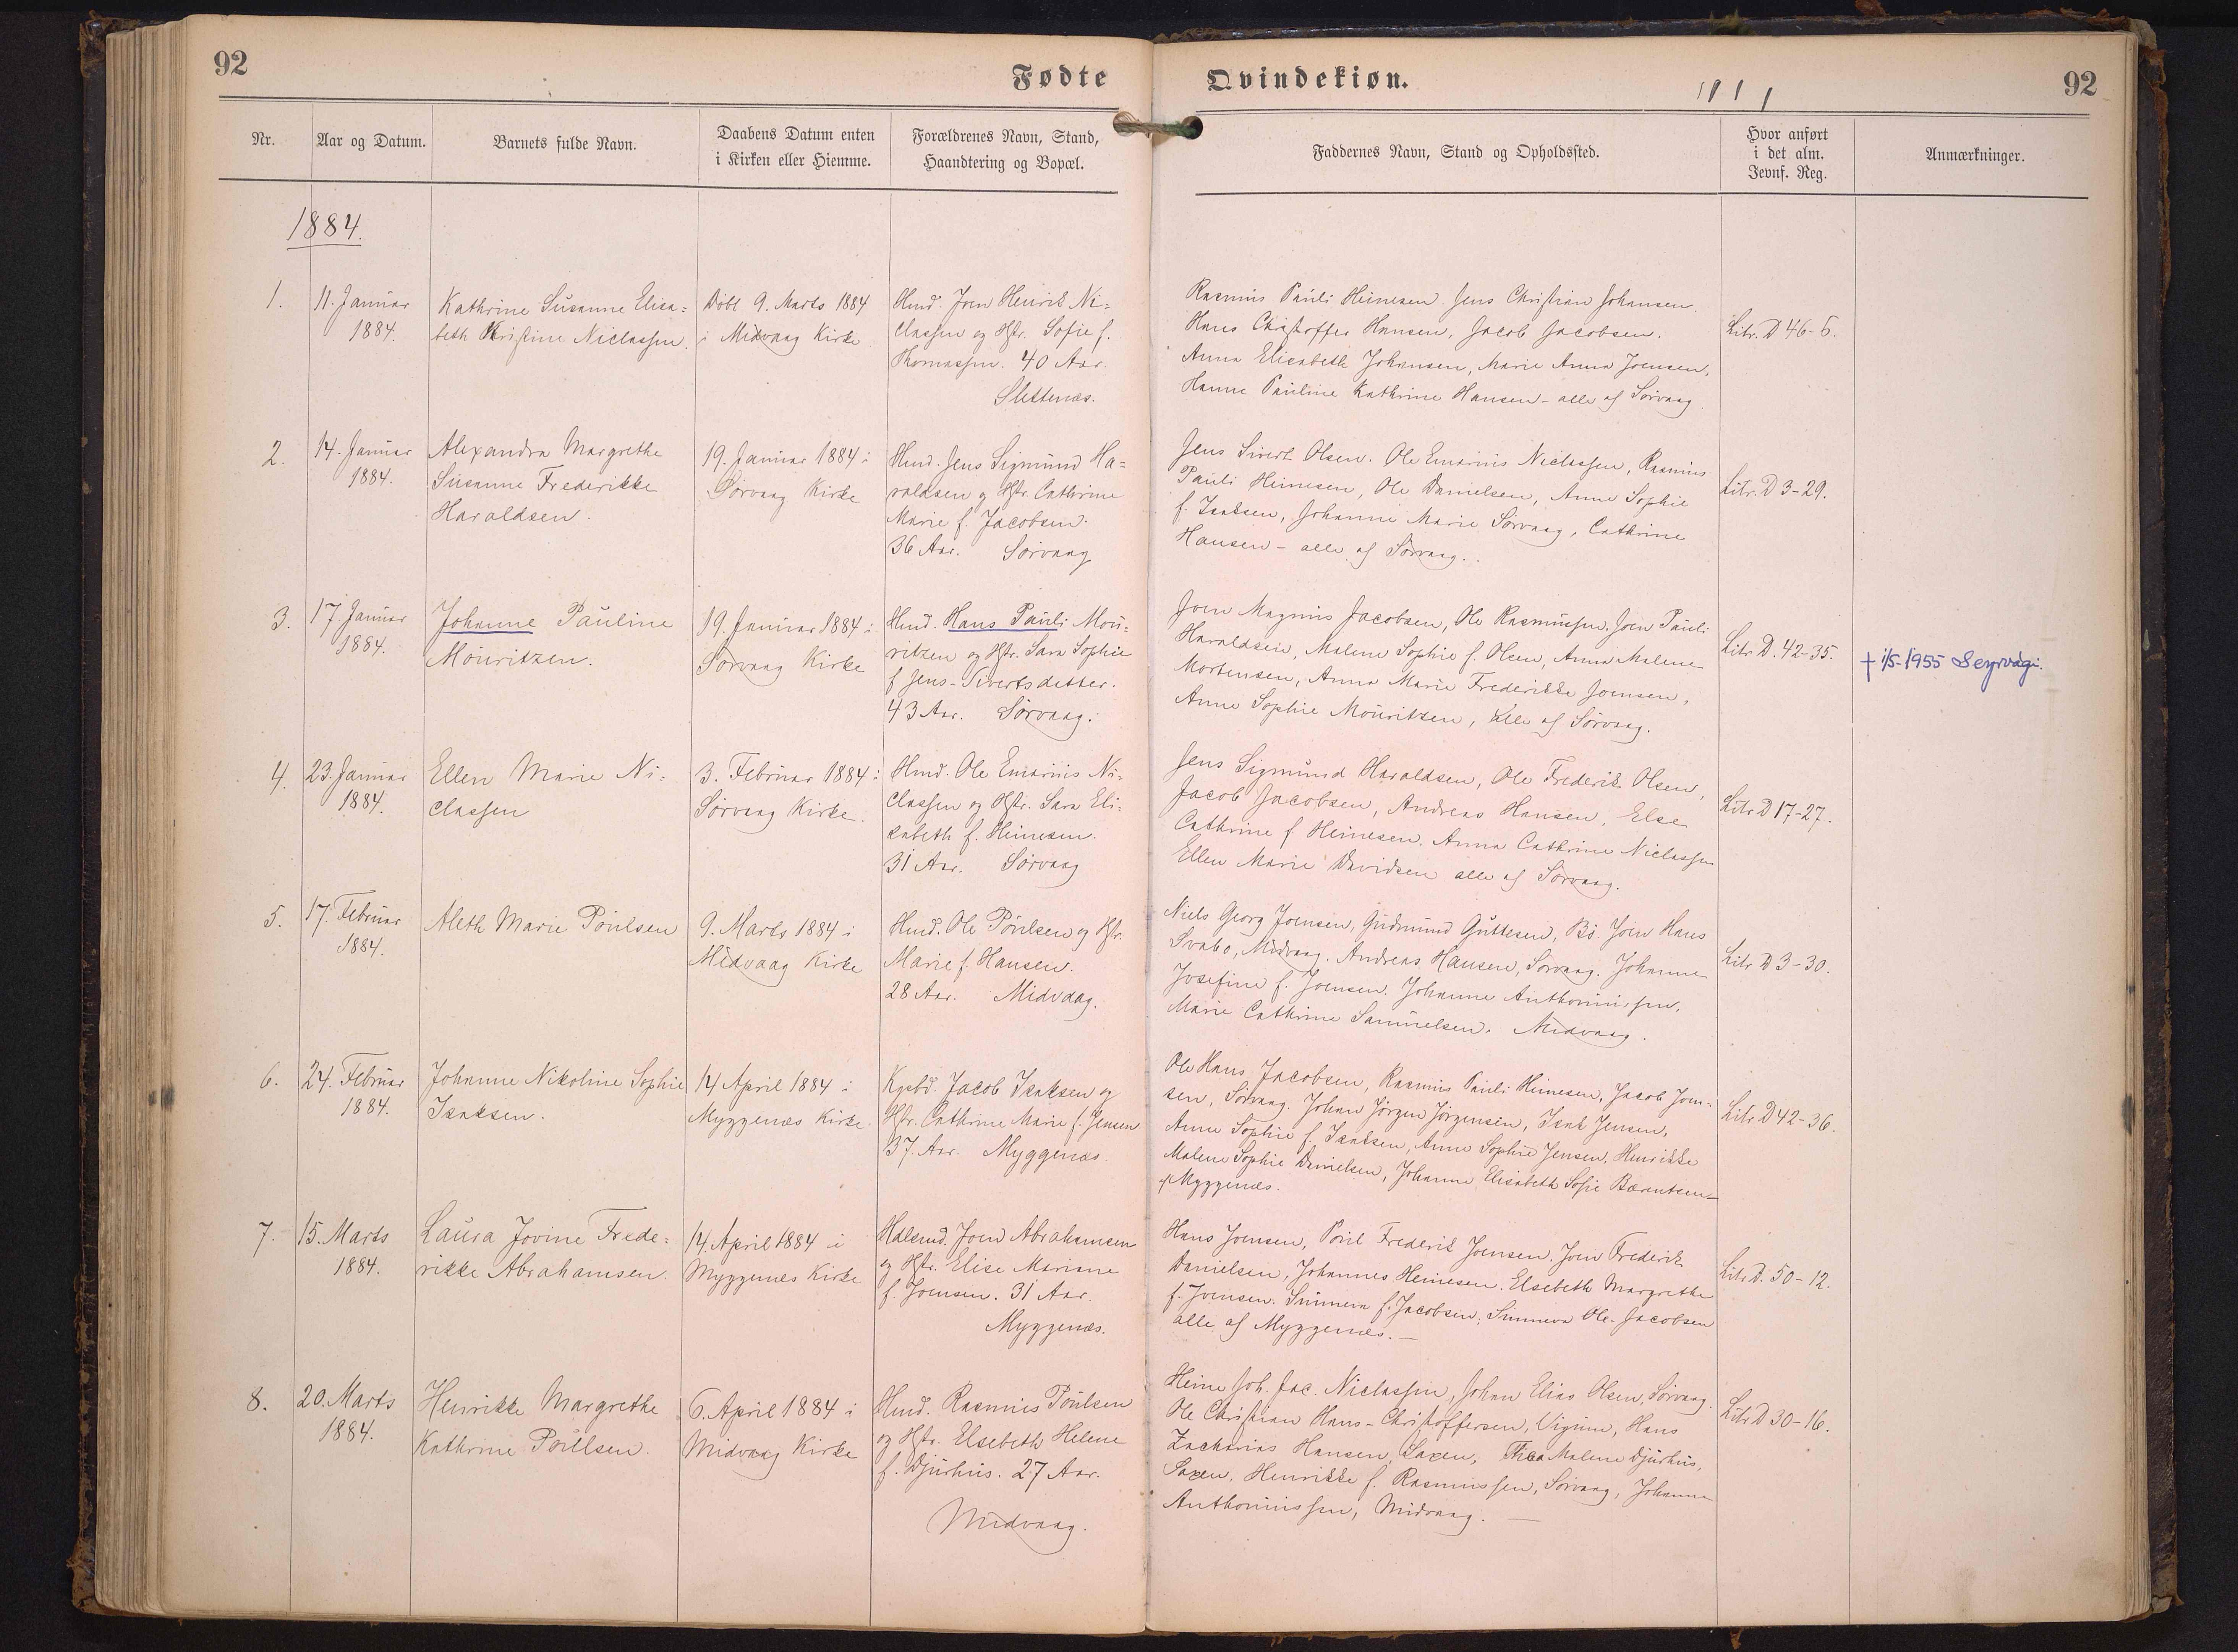 92
Fødte
Qvindekiøn.
92
Nr.
Aar og Datum.
Barnets fulde Navn.
Daabens Datum enten
i Kirken eller Hiemme.
Forældrenes Navn, Stand,
Haandtering og Bopæl.
Faddernes Navn, Stand og Opholdssted.
Hvor anført
i det alm.
Jevnf. Reg.
Anmærkninger.
1884.
1.
11. Januar
1884.
Kathrine Susanne Elisa=
beth Kristine Niclassen.
Døbt 9. Marts 1884
i Midvaag Kirke
Hmd. Joen Henrik Ni=
classen og Hstr. Sofie f.
Thomassen. 40 Aar.
Slettenæs.
Rasmus Pauli Heinesen. Jens Christian Johansen.
Hans Christoffer Hansen, Jacob Jacobsen.
Anna Elisabeth Johansen, Marie Anna Joensen,
Hanne Pauline Kathrine Hansen - alle af Sørvaag.
Litr. D 46-6.
2.
14. Januar
1884.
Alexandra Margrethe
Susanne Frederikke
Haraldsen.
19. Januar 1884 i
Sørvaag Kirke
Hmd. Jens Sigmund Ha=
raldsen og Hstr. Cathrine
Marie f. Jacobsen.
36 Aar. Sørvaag
Jens Sivert Olsen. Ole Emarius Niclassen, Rasmus
Pauli Heinesen, Ole Danielsen, Anne Sophie
f. Isaksen, Johanne Marie Sørvaag, Cathrine
Hansen - alle af Sørvaag.
Litr. D 3-29.
3.
17. Januar
1884.
Johanne Pauline
Mouritzen.
19. Januar 1884 i
Sørvaag Kirke
Hmd. Hans Pauli Mou=
ritzen og Hstr. Sara Sophie
f. Jens-Sivertsdatter.
43 Aar. Sørvaag.
Joen Magnus Jacobsen, Ole Rasmussen. Joen Pauli
Haraldsen, Malene Sophie f. Olsen, Anna Malene
Mortensen, Anna Marie Frederikke Joensen,
Anne Sophie Mouritzen, alle af Sørvaag.
Litr D. 42-35.
† 1/5-1955 Seyrvági.
4.
23. Januar
1884.
Ellen Marie Ni=
classen
3. Februar 1884 i
Sørvaag Kirke.
Hmd. Ole Emarius Ni=
classen og Hstr. Sara Eli=
sabeth f. Heinesen.
31 Aar. Sørvaag
Jens Sigmund Haraldsen, Ole Frederik Olsen,
Jacob Jacobsen, Andreas Hansen, Else
Cathrine f. Heinesen. Anna Cathrine Niclassen
Ellen Marie Davidsen alle af Sørvaag.
Litr D 17-27.
5.
17. Februar
1884.
Aleth Marie Poulsen
9. Marts 1884 i
Midvaag Kirke
Hmd. Ole Poulsen og Hstr.
Marie f. Hansen.
28 Aar. Midvaag.
Niels Georg Joensen, Gudmund Guttesen, Bø Joen Hans
Svabo, Midvaag. Andreas Hansen, Sørvaag. Johanne
Josefine f. Joensen. Johanne Anthoniussen.
Marie Cathrine Samuelsen. Midvaag.
Litr D 3-30.
6.
24. Februar
1884.
Johanne Nikoline Sophie
Isaksen.
14 April 1884 i
Myggenæs Kirke.
Kgsbd. Jacob Isaksen og
Hstr. Cathrine Marie f. Jensen
37. Aar. Myggenæs
Ole Hans Jacobsen, Rasmus Pauli Heinesen, Jacob Joen=
sen, Sørvaag. Johan Jörgen Jörgensen, Isak Jensen,
Anne Sophie f. Isaksen, Anne Sophie Jensen. Henrikke
Malene Sophie Danielsen, Johanne Elisabeth Sofie Bærentsen
Myggenæs.
Litr D 42-36.
7.
15. Marts
1884.
Laura Jovine Frede=
rikke Abrahamsen.
14. April 1884 i
Myggenæs Kirke
Halsmd. Joen Abrahamsen
og Hstr. Elise Mariane
f. Joensen. 31 Aar.
Myggenæs.
Hans Joensen, Poul Frederik Joensen. Joen Frederik
Danielsen, Johannes Heinesen. Elsebeth Margrethe
f. Joensen. Sunneva f. Jacobsen, Sunneva Ole-Jacobsen
alle af Myggenæs. —
Litr D. 50-12.
8.
20. Marts
1884.
Henrikke Margrethe
Kathrine Poulsen.
6. April 1884 i
Midvaag Kirke
Hmd. Rasmus Poulsen
og Hstr. Elsebeth Helene
f. Djurhuus. 27 Aar.
Midvaag.
Heine Joh. Jac. Niclassen, Johan Elias Olsen, Sørvaag.
Ole Christian Hans-Christoffersen, Vigum, Hans
Zacharias Hansen, Saxen, Thea Malene Djurhus,
Saxen, Henrikke f. Rasmussen, Sørvaag, Johanne
Anthoniussen, Midvaag. —
Litr D 30-16.